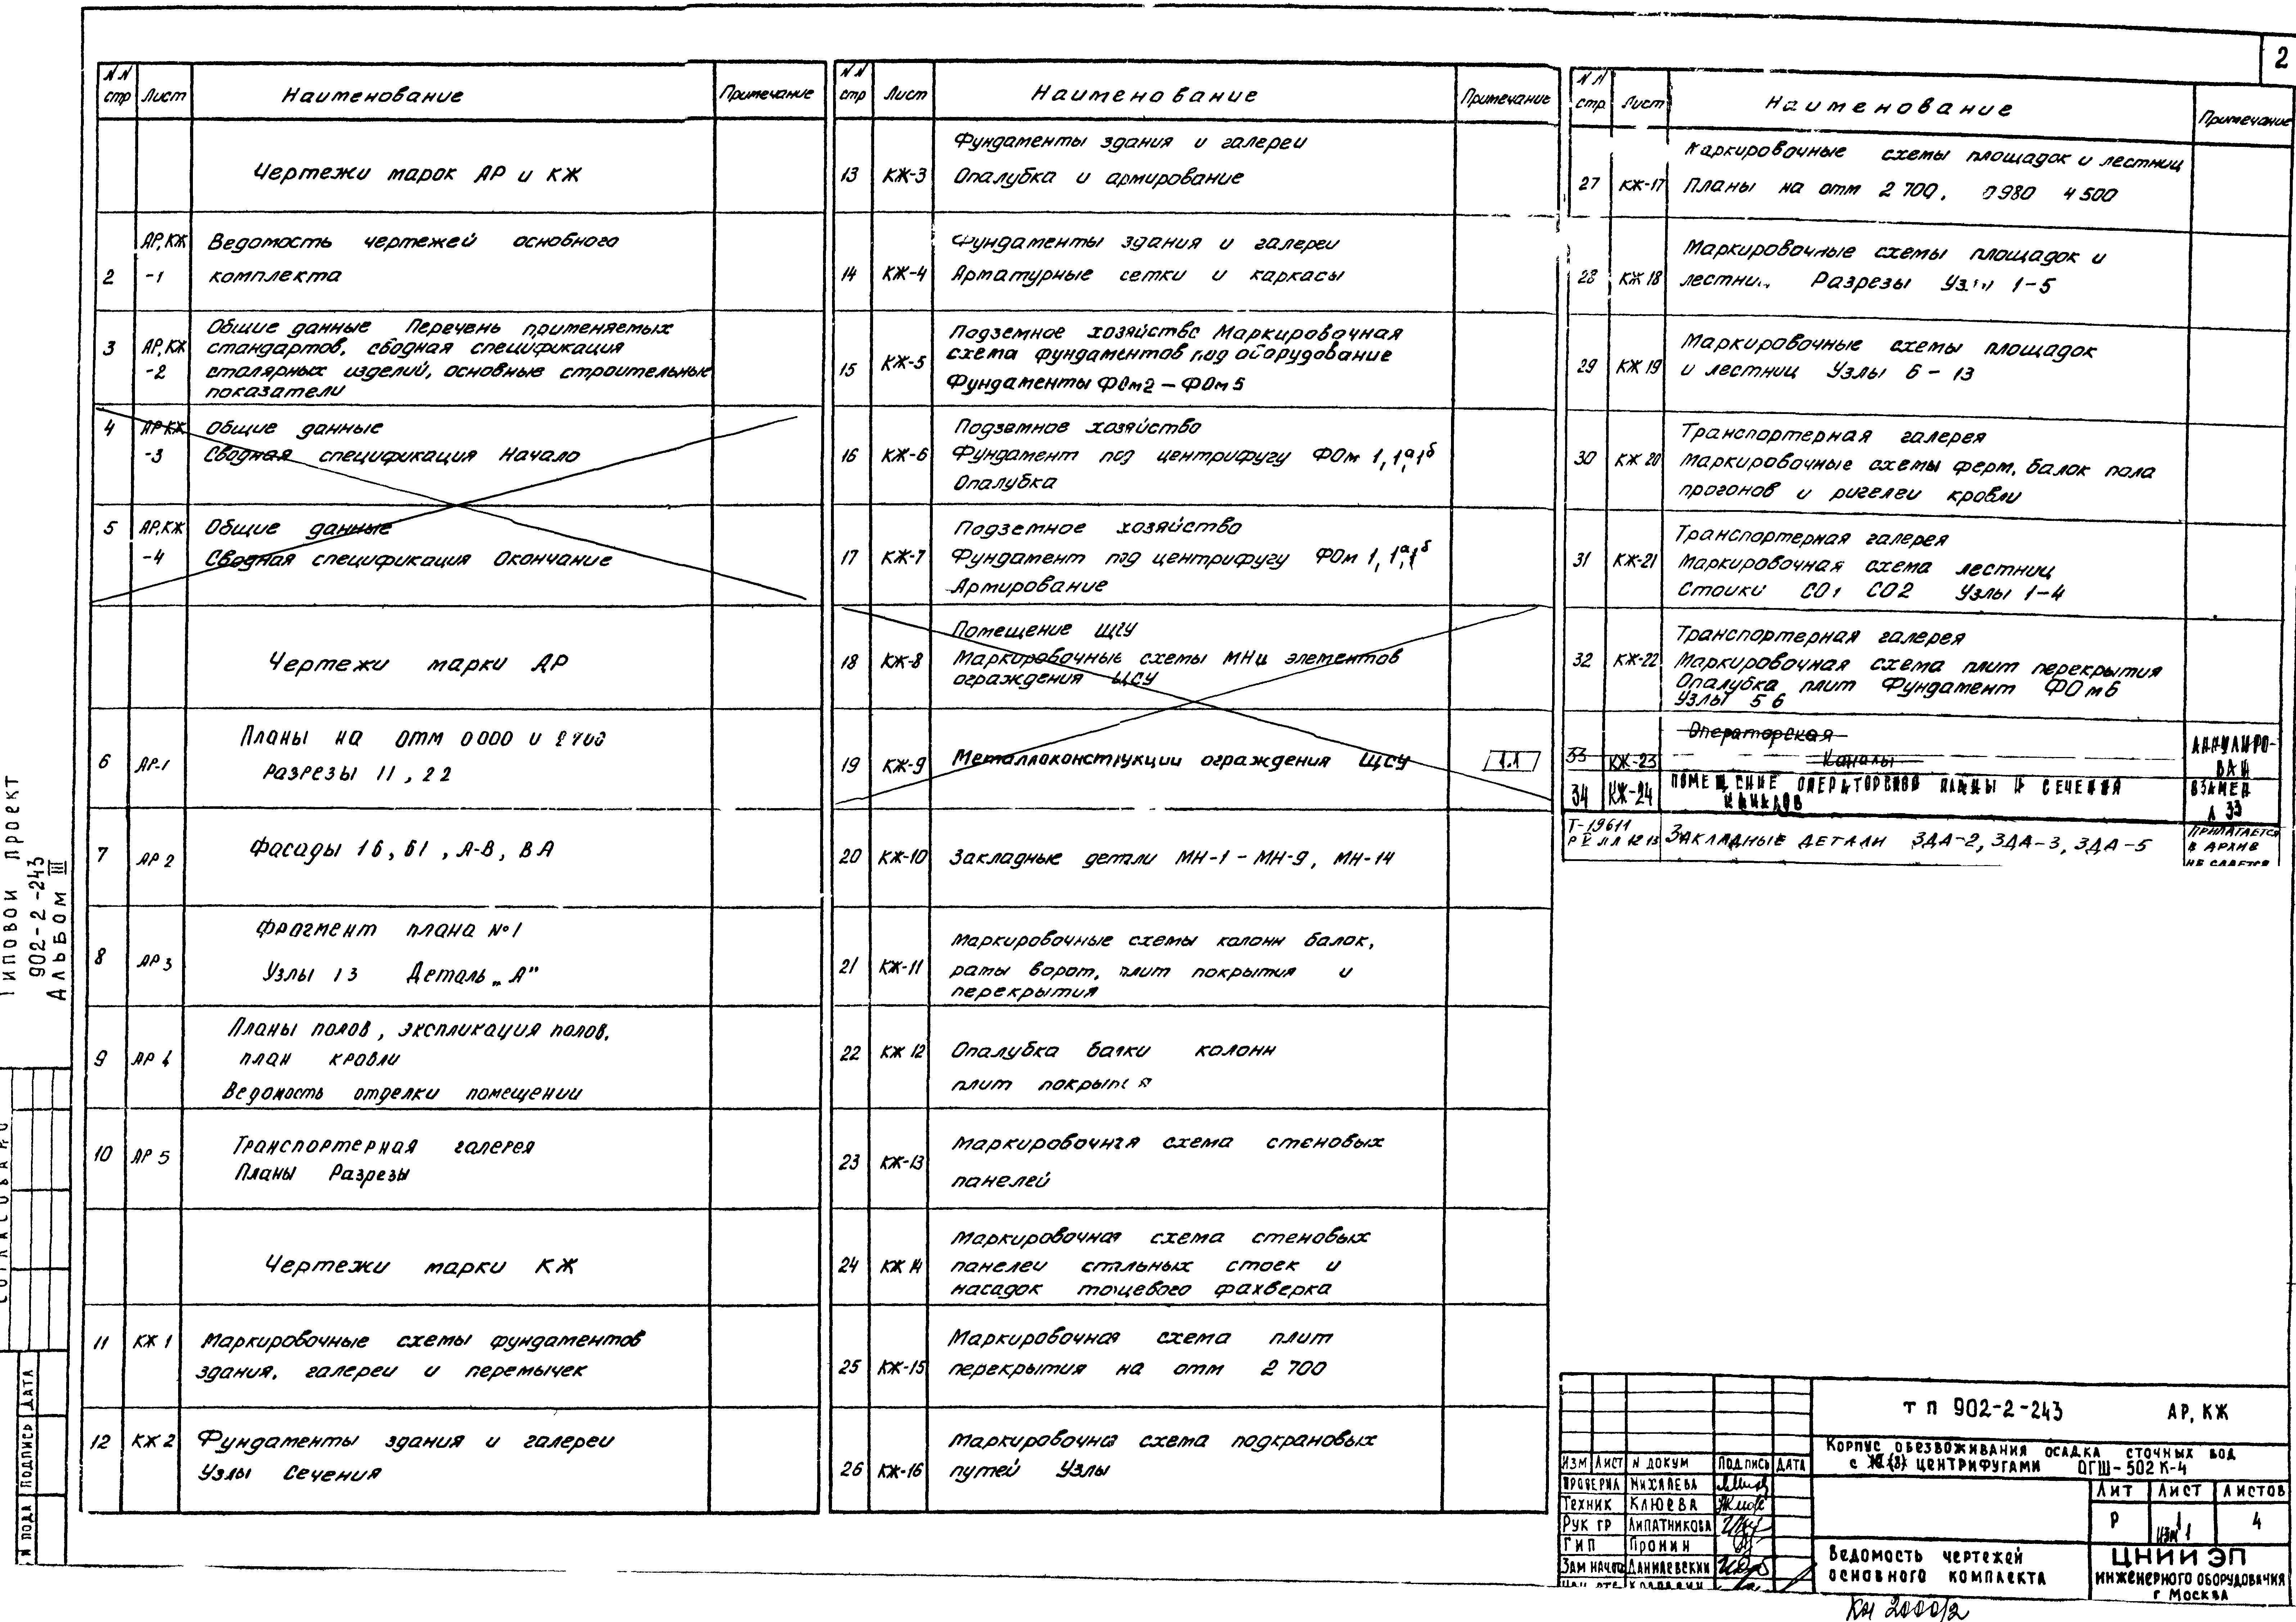 2
NN стр Лист Наименование Примечание
Чертежи марок АР и КЖ
АР,КЖ Ведомость чертежей основного
2 -1 комплекта
Общие данные Перечень применяемых
3 АР,КЖ стандартов, сводная спецификация
-2 столярных изделий, основные строительные
показатели
4 АР КЖ Общие данные
-3 Сводная спецификация Начало
5 АР,КЖ Общие данные
-4 Сводная спецификация Окончание
Чертежи марки АР
Планы на отм 0000 и 2700
6 АР-1 Разрезы 11, 22
7 АР 2 Фасады 1б, б1, А-В, ВА
Фрагмент плана №1
8 АР 3 Узлы 13 Деталь „А"
Планы полов, экспликация полов,
9 АР 4 план кровли
Ведомость отделки помещении
10 АР 5 Транспортерная галерея
Планы Разрезы
Чертежи марки КЖ
11 КЖ 1 Маркировочные схемы фундаментов
здания, галереи и перемычек
12 КЖ 2 Фундаменты здания и галереи
Узлы Сечения
NN стр Лист Наименование Примечание
Фундаменты здания и галереи
13 КЖ-3 Опалубка и армирование
Фундаменты здания и галереи
14 КЖ-4 Арматурные сетки и каркасы
Подземное хозяйство Маркировочная
15 КЖ-5 схема фундаментов под оборудование
Фундаменты ФОм2 – ФОм5
Подземное хозяйство
16 КЖ-6 Фундамент под центрифугу ФОм 1, 1а, 1б
Опалубка
Подземное хозяйство
17 КЖ-7 Фундамент под центрифугу ФОм 1, 1а, 1б
Армирование
Помещение ЩСУ
18 КЖ-8 Маркировочные схемы МНи элементов
ограждения ЩСУ
19 КЖ-9 Металлоконструкции ограждения ЩСУ 1.1
20 КЖ-10 Закладные детали МН-1 – МН-9, МН-14
Маркировочные схемы колонн балок,
21 КЖ-11 рамы ворот, плит покрытия и
перекрытия
22 КЖ 12 Опалубка балки колонн
плит покрытия
23 КЖ-13 Маркировочная схема стеновых
панелей
Маркировочная схема стеновых
24 КЖ 14 панелеи стальных стоек и
насадок торцевого фахверка
Маркировочная схема плит
25 КЖ-15 перекрытия на отм 2 700
Маркировочная схема подкрановых
26 КЖ-16 путей Узлы
NN стр Лист Наименование Примечание
Маркировочные схемы площадок и лестниц
27 КЖ-17 Планы на отм 2 700, 0980 4 500
Маркировочные схемы площадок и
28 КЖ 18 лестниц Разрезы Узлы 1-5
Маркировочные схемы площадок
29 КЖ 19 и лестниц Узлы 6 – 13
Транспортерная галерея
30 КЖ 20 Маркировочные схемы ферм, балок пола
прогонов и ригелеи кровли
Транспортерная галерея
31 КЖ-21 Маркировочная схема лестниц
Стоики СО1 СО2 Узлы 1-4
Транспортерная галерея
32 КЖ-22 Маркировочная схема плит перекрытия
Опалубка плит Фундамент ФОм6
Узлы 5 6
33 КЖ-23 Операторская
Каналы
АННУЛИРО-
ВАН
34 КЖ-24 ПОМЕЩЕНИЕ ОПЕРАТОРСКОЙ ПЛАНЫ И СЕЧЕНИЯ
КАНАЛОВ
ВЗАМЕН
Л 33
Т-19611 ЗАКЛАДНЫЕ ДЕТАЛИ ЗДА-2, ЗДА-3, ЗДА-5
ПРИЛАГАЕТСЯ
В АРХИВ
НЕ СДАЕТСЯ
ТИПОВОЙ ПРОЕКТ
902-2-243
АЛЬБОМ III
СОГЛАСОВАНО
ПОДПИСЬ ДАТА
N ПОДЛ
ТП 902-2-243 АР, КЖ
КОРПУС ОБЕЗВОЖИВАНИЯ ОСАДКА СТОЧНЫХ ВОД
С (3) ЦЕНТРИФУГАМИ ОГШ-502 К-4
ИЗМ ЛИСТ N ДОКУМ ПОДПИСЬ ДАТА
ПРОВЕРИЛ МИХАЛЕВА
ТЕХНИК КЛЮЕВА
РУК ГР ЛИПАТНИКОВА
ГИП ПРОНИН
ЗАМ НАЧ ОТД ДАНИЛЕВСКИЙ
НАЧ ОТД
ЛИТ ЛИСТ ЛИСТОВ
Р 1 4
ИЗМ 1
ВЕДОМОСТЬ ЧЕРТЕЖЕЙ
ОСНОВНОГО КОМПЛЕКТА
ЦНИИЭП
ИНЖЕНЕРНОГО ОБОРУДОВАНИЯ
Г МОСКВА